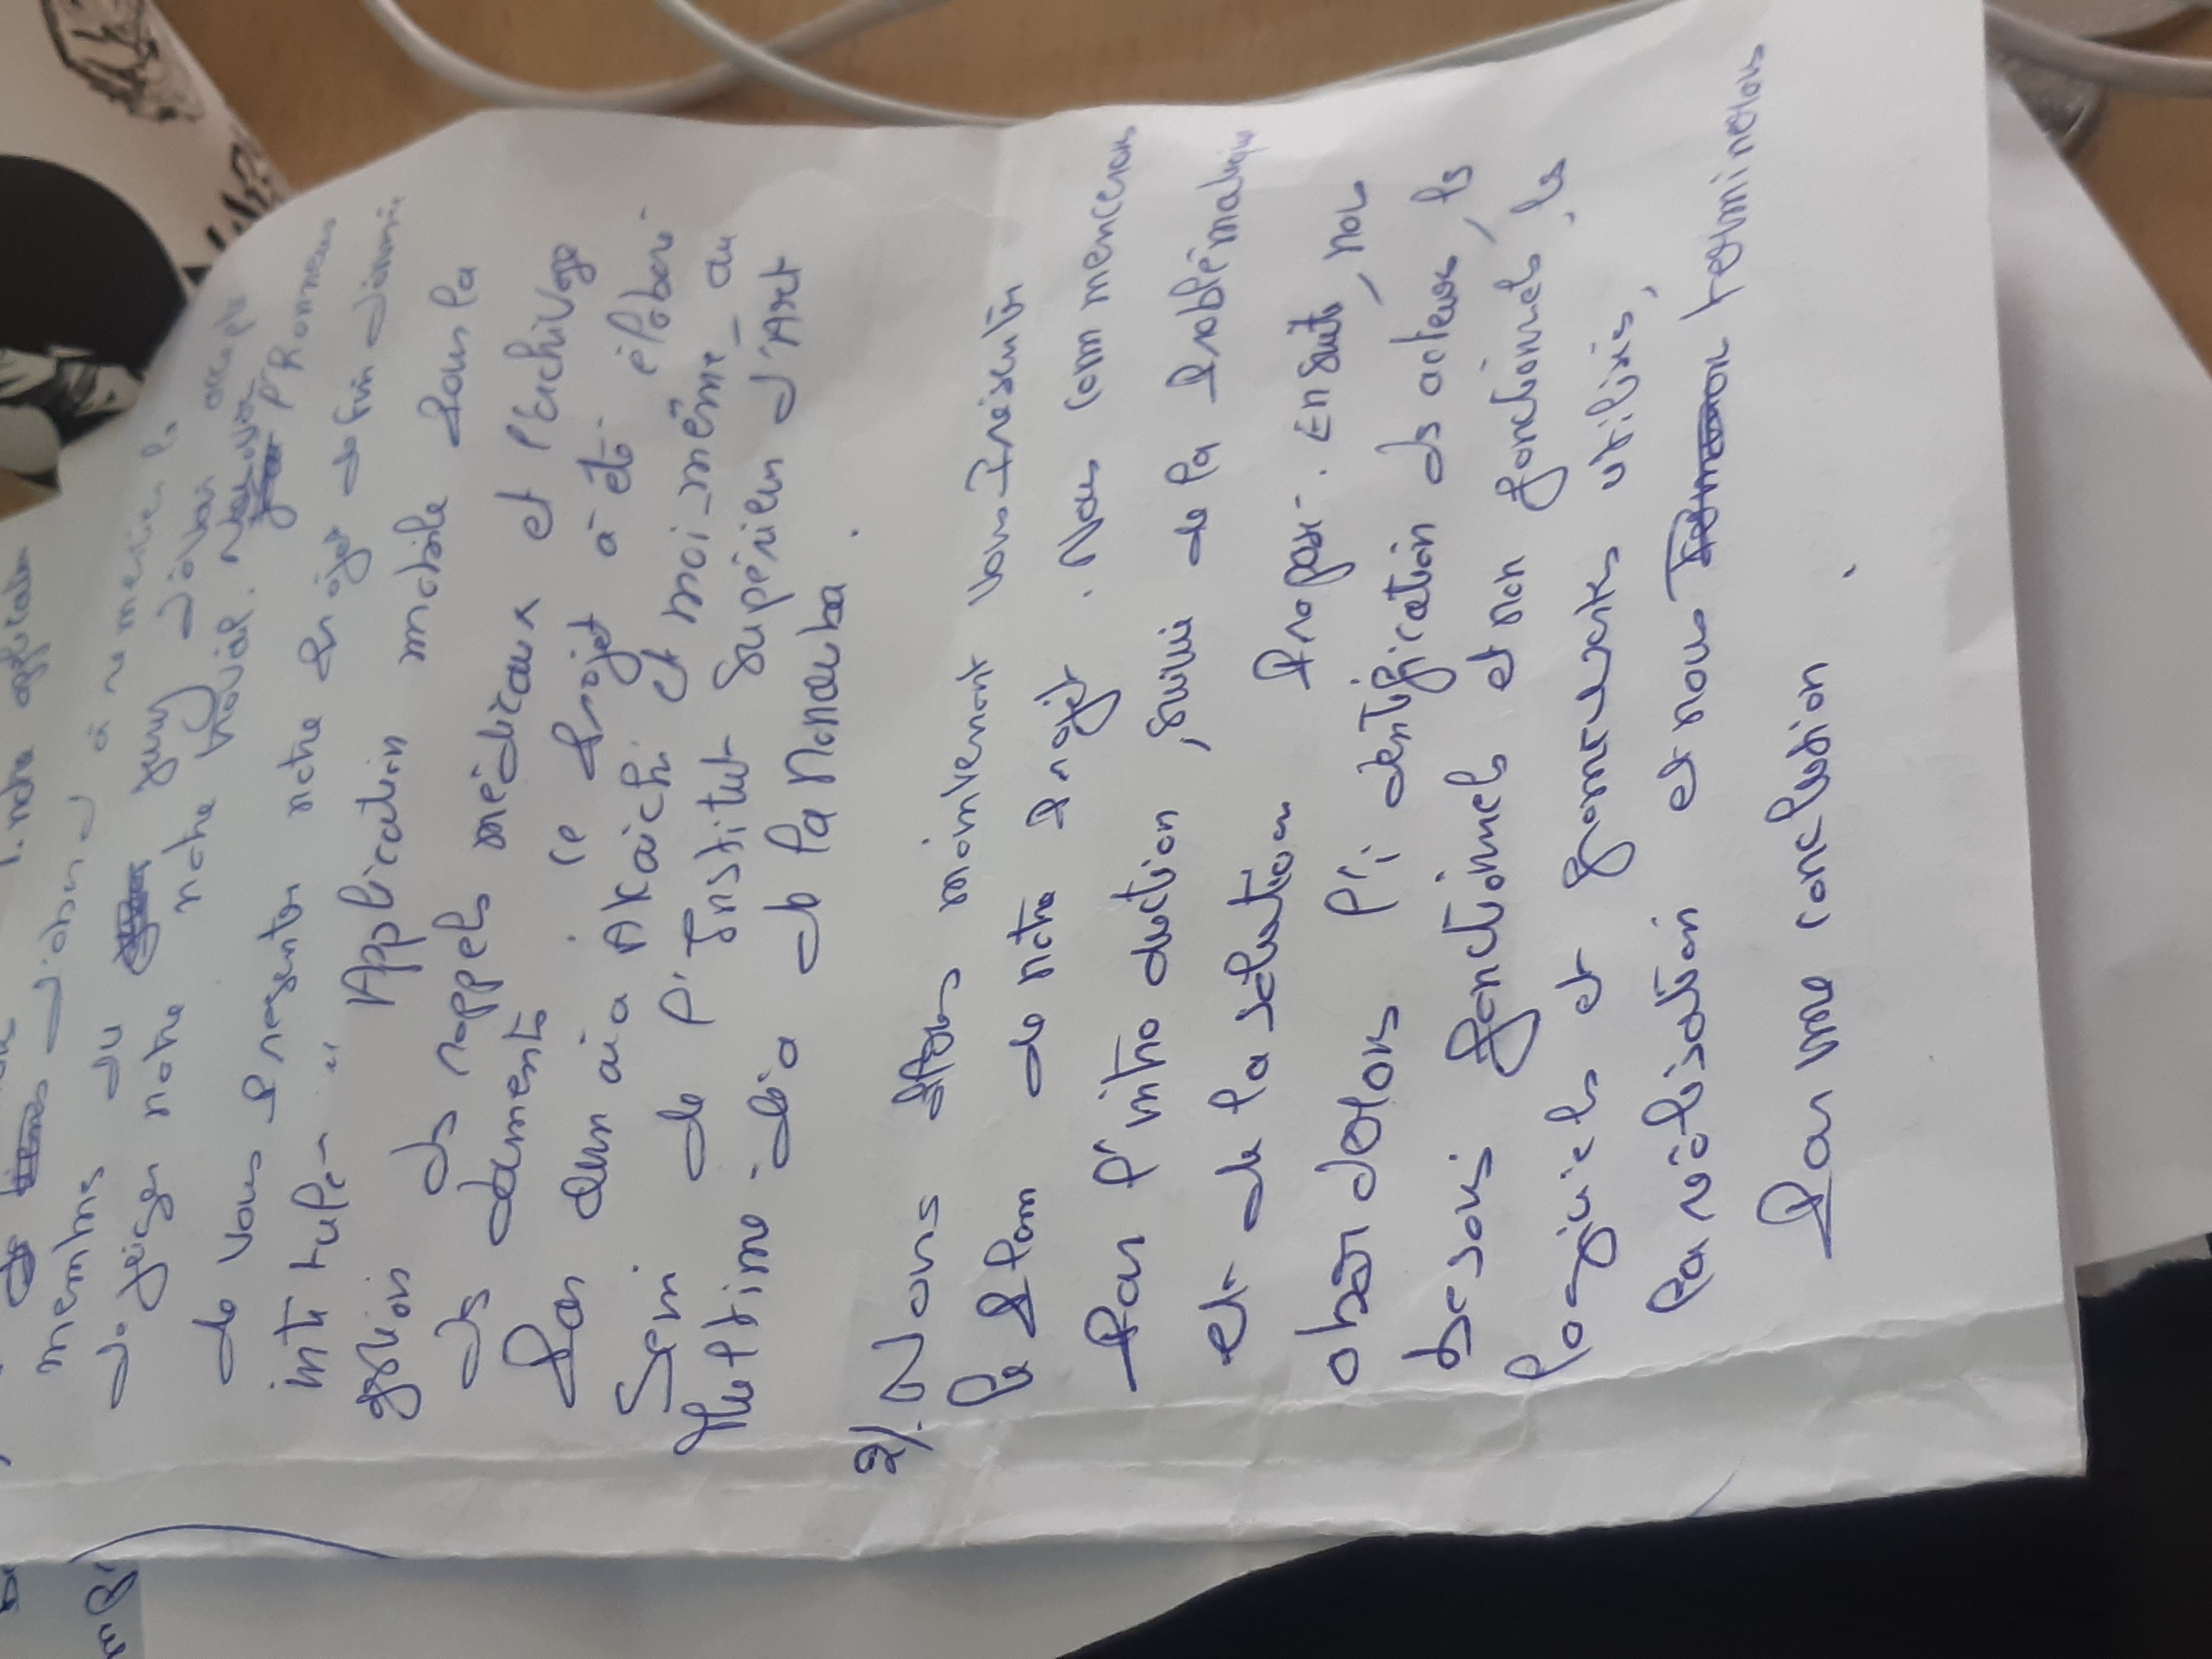 1. notre
membres du jury d'abord à remercier les
de juger notre travail. nous avons l'honneur
de vous presenter notre projet de fin d'année
intitulé " Application mobile pour la
gestion des rappels médicaux et l'archivage
des documents. ce projet a été élaboré
Par Oumaima Akaichi et moi-même au
sein de l'Institut Supérieur d'Art
Multimédia de la Manouba.
2/. Nous allons maintenant vous Présenter
le Plan de notre projet. Nous commencerons
Par l'introduction, suivie de la Problématique
et de la solution Proposé. Ensuite, nous
aborderons l'identification des acteurs, les
besoins fonctionnels et non fonctionnels, les
logiciels et frameworks utilisés,
la réalisation et nous terminerons
Par une conclusion.